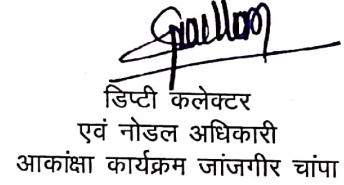 डिप्टी कलेक्टर
एवं नोडल अधिकारी
आकांक्षा कार्यक्रम जांजगीर चांपा